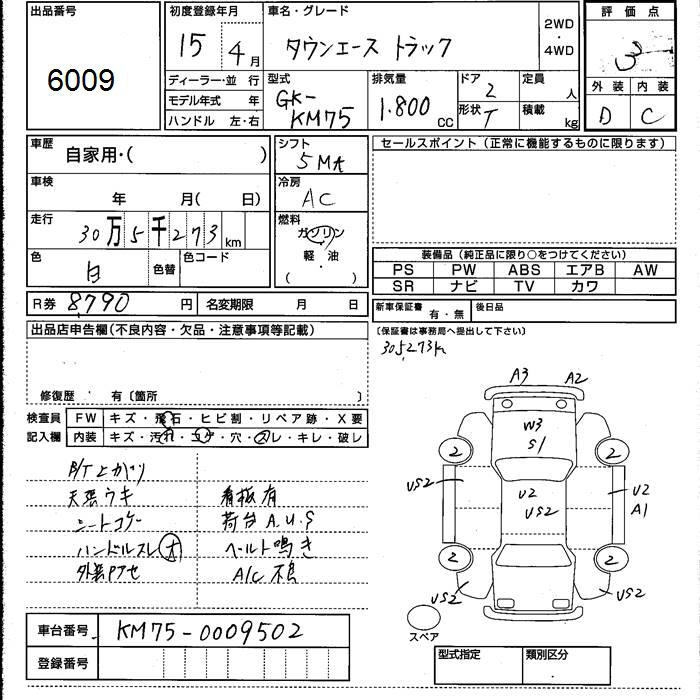 出品番号
6009
初度登録年月
15 年 4 月
車名・グレード
タウンエース トラック
2WD
・
4WD
評価点
3
外装 内装
D C
ディーラー・並 行
モデル年式 年
ハンドル 左・右
型式
GK-
KM75
排気量
1.800 cc
ドア 2
形状 T
定員 人
積載 kg
車歴
自家用・( )
車検
年 月( 日)
走行
30万5千273 km
色
白
色替
色コード
シフト
5Mt
冷房
AC
燃料
ガソリン
軽・油
( )
セールスポイント（正常に機能するものに限ります）
装備品（純正品に限り○をつけてください）
PS PW ABS エアB AW
SR ナビ TV カワ
R券 8,790 円
名変期限 月 日
新車保証書 有・無
後日品
（保証書は事務局へ提出して下さい）
305273k
出品店申告欄（不良内容・欠品・注意事項等記載）
修復歴 有〔箇所 〕
検査員
記入欄
FW キズ・飛石・ヒビ割・リペア跡・X要
内装 キズ・汚れ・コゲ・穴・スレ・キレ・破レ
B/T上がり
天張ウキ 看板有
シートコゲ 荷台A.U.S
ハンドルスレ 大 ベルト鳴き
外装 A/C不良
A3 A2
W3
S1
2 2
US2 U2 U2
US2 A1
2 2
US2 US2
スペア
車台番号 KM75-0009502
登録番号
型式指定 類別区分